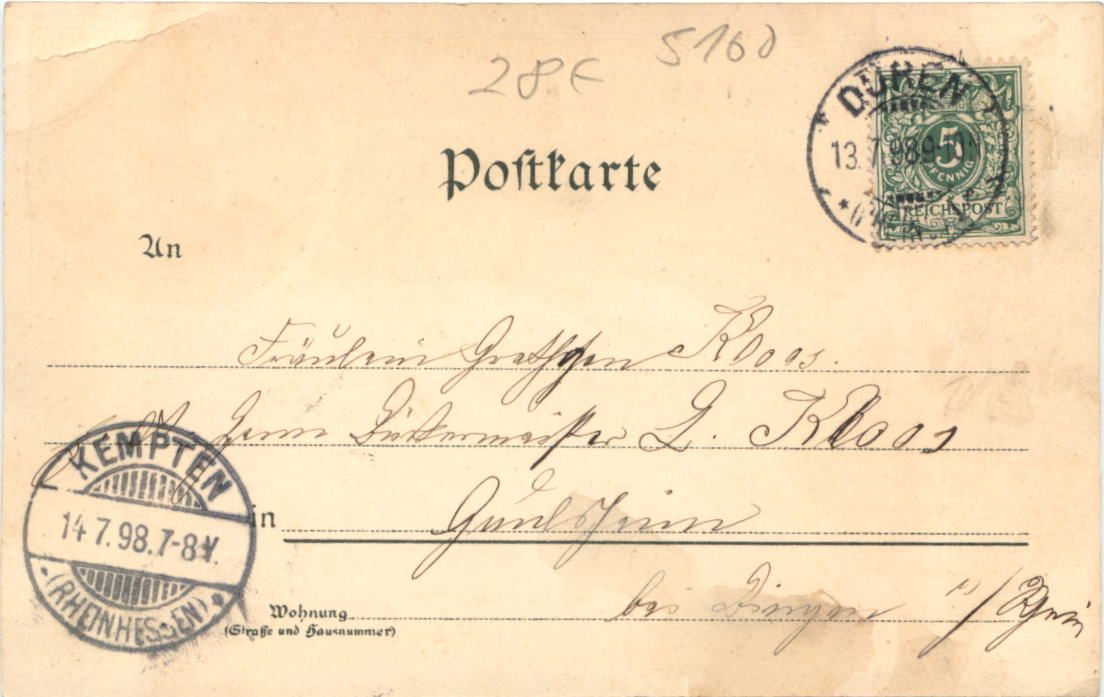 5160
28 €
Postkarte
DÜREN
13.7.98 9-10
5
PFENNIG
REICHSPOST
An
Fräulein Grethchen Kloos.
Herrn Bäckermeister L. Kloos
KEMPTEN
14.7.98.7-8V.
(RHEINHESSEN)
in
bei Bingen a/Rhein
Wohnung
(Straße und Hausnummer)